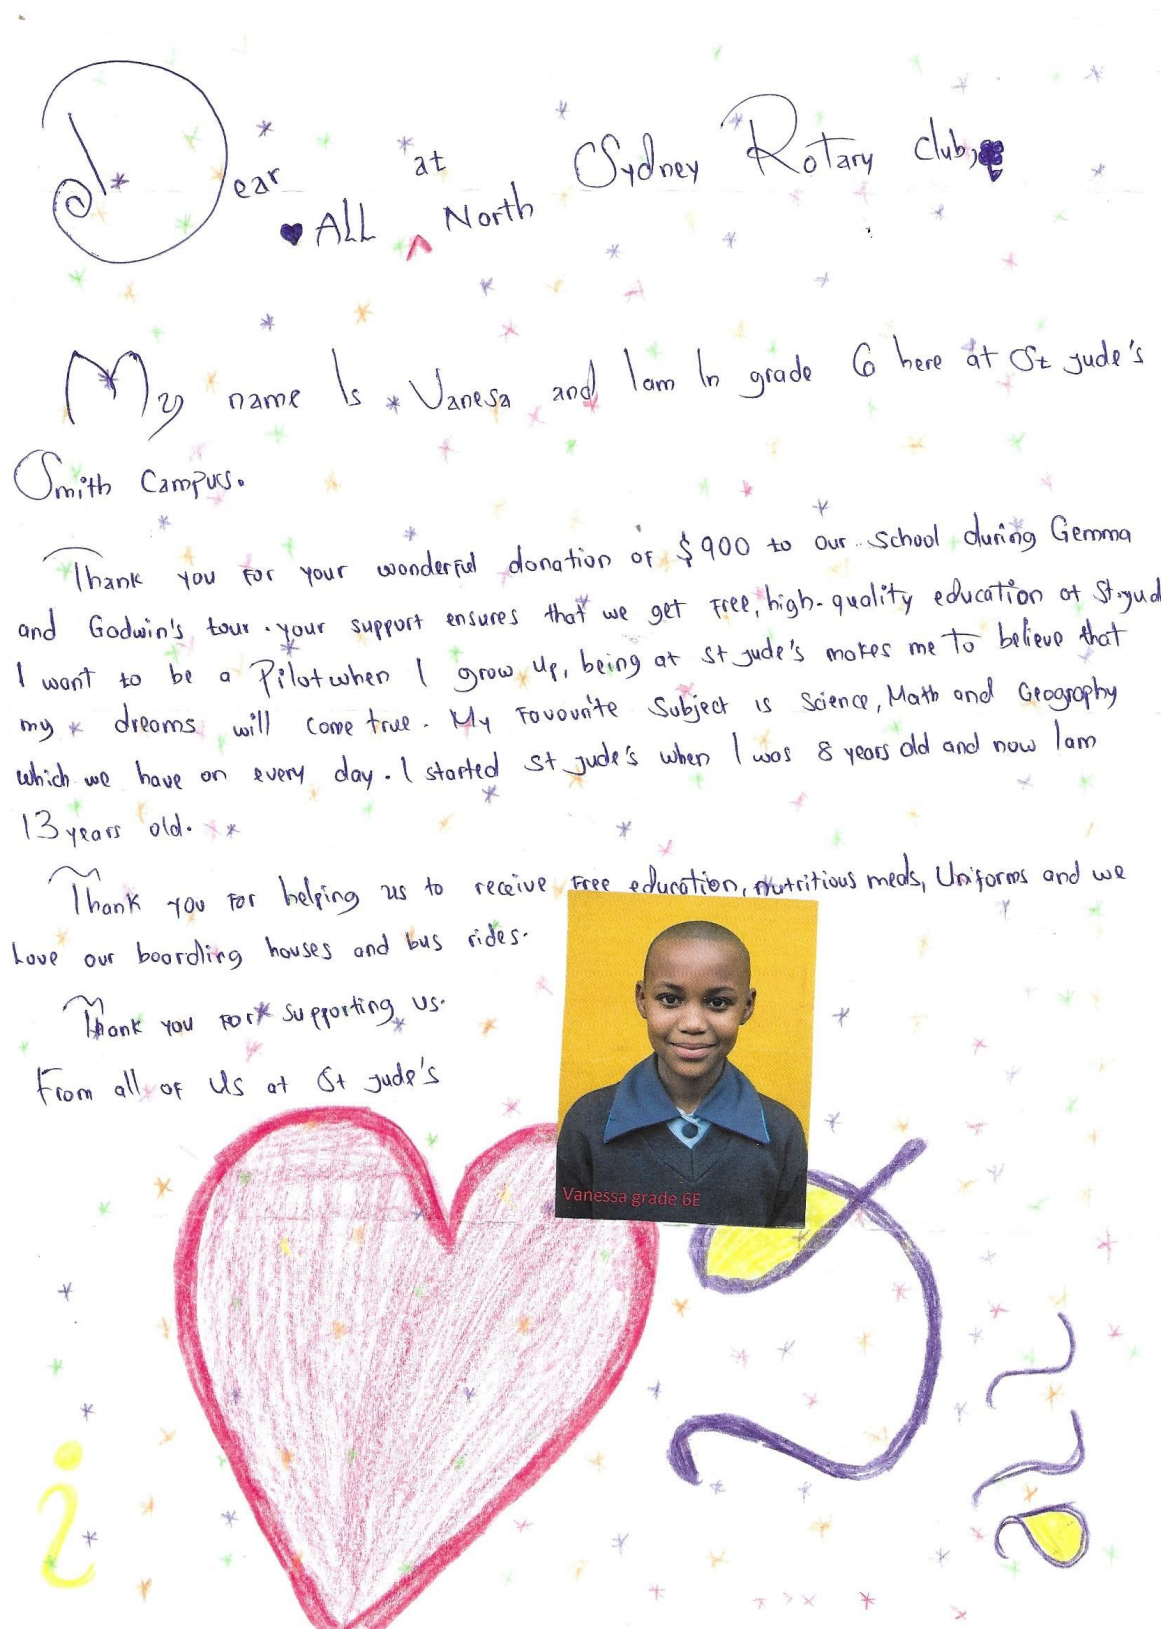 Dear
ALL at North Sydney Rotary Club,
My name Is Vanesa and Iam In grade 6 here at St Jude's
Smith Campus.
Thank you For your wonderful donation of $900 to our school during Gemma
and Godwin's tour. your support ensures that we get Free, high-quality education at St.jud
I want to be a Pilot when I grow up, being at st jude's makes me to believe that
my dreams will come true. My Favourite Subject is Science, Math and Geography
which we have on every day. I started st jude's when I was 8 years old and now Iam
13 years old.
Thank you For helping us to receive Free education, nutritious meals, Uniforms and we
Love our boarding houses and bus rides.
Thank you For supporting us.
From all of Us at St jude's
Vanessa grade 6E
i
all